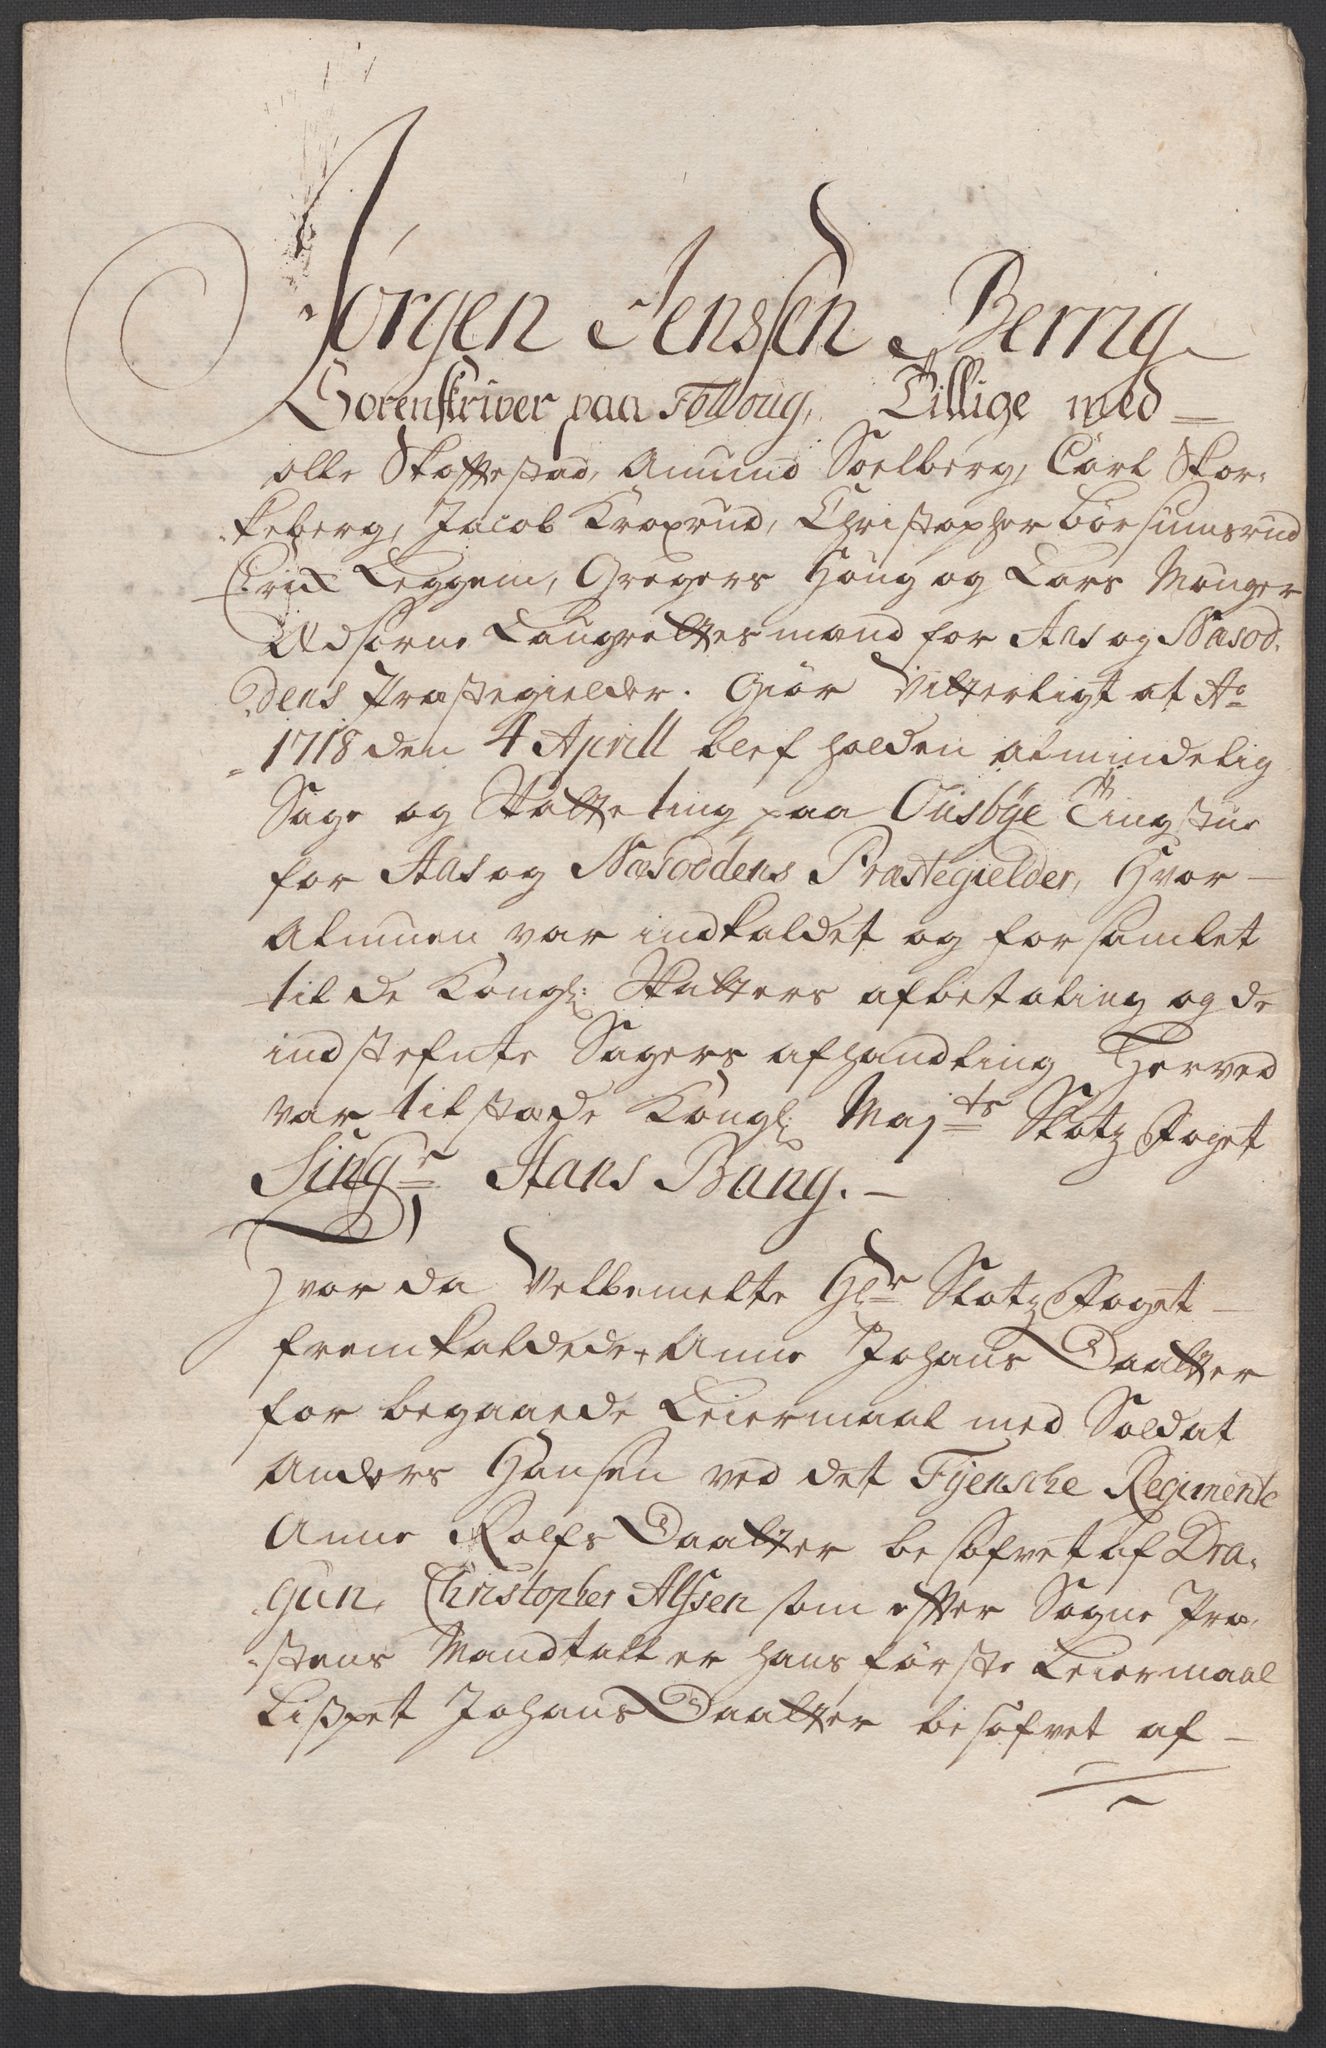 Jörgen Jenssen Berrig
Sorenskriver paa Folloug, Tillige med
olle Skoftestad, Amund Soelberg, Carl Skor-
keberg, Jacob Kroxrud, Christopher Börsumsrud
Erix Leggem, Gregers Houg og Lars Monger
Udsorne Laugrettesmænd for Aas og Næsod-
dens Præstegielder. Giör Vitterligt at Ao
1718 den 4 Aprill blef holden almindelig
Sage og Skatteting paa Ousbye Tingstue
for Aas og Næsoddens Præstegielder, Hvor
Almuen var indkaldet og forsamlet
til de Kongl: Skatters afbetaling og de
indstefnte Sagers afhandling Herved
var tilstæde Kongl: Majts Slotz Foget
Singr Hans Bang.
Hvor da Velbemelte Hlr Slotz Foget
fremkaldede Anne Johans Daatter
for begaaede Leiermaal med Soldat
Anders Hansen ved det Fyensche Regimente
Anne Rolfs Daatter besofvet af Dra-
gun, Christopher Alfsen som efter Sogne Præ-
stens Mandtall er hans förste Leiermaal
Lisbet Johans Daatter besofvet af